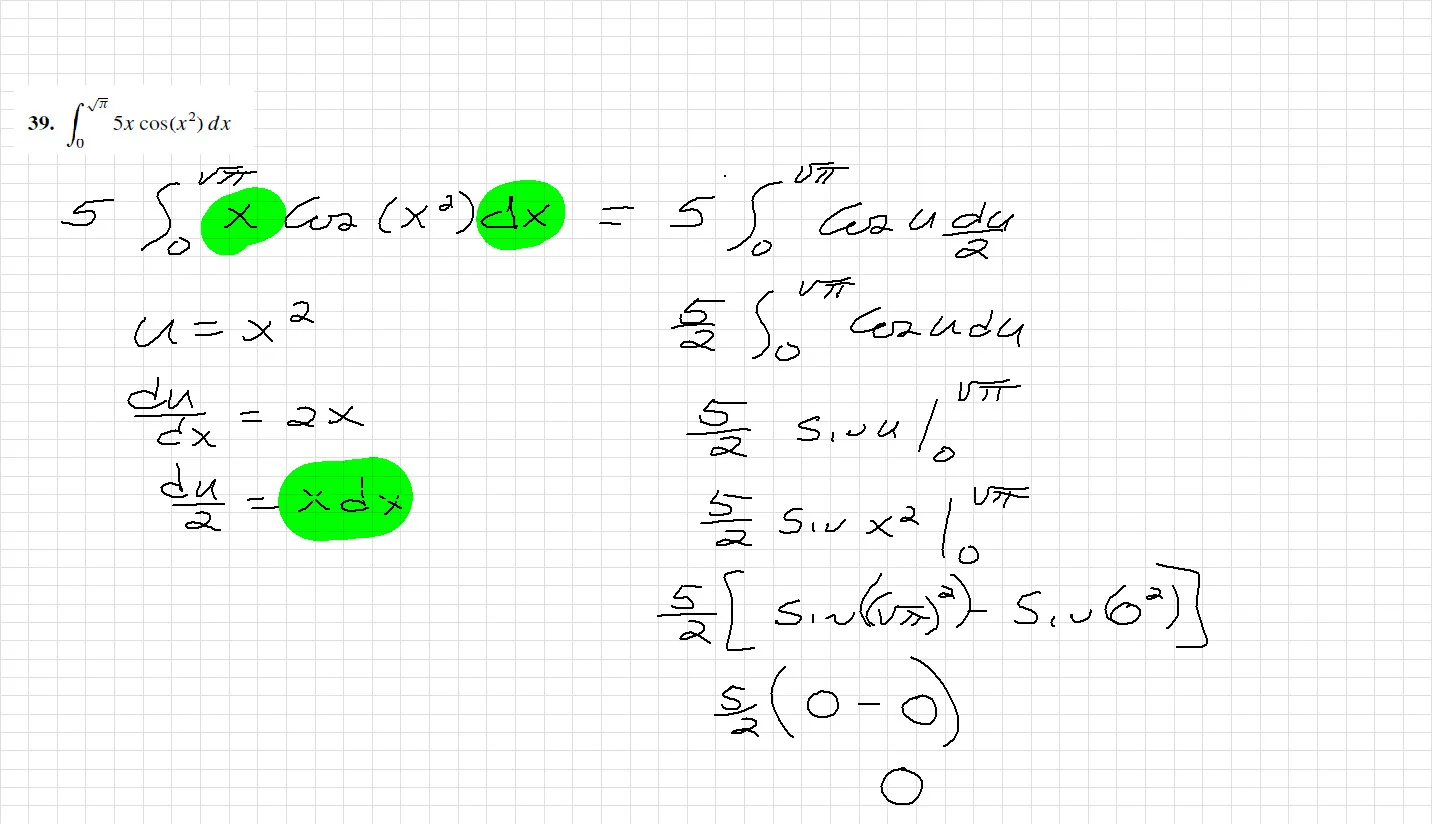 39. ∫₀^√π 5x cos(x²) dx
5 ∫₀^√π x cos (x²) dx = 5 ∫₀^√π cos u du/2
u = x²
du/dx = 2x
du/2 = x dx
5/2 ∫₀^√π cos u du
5/2 sin u |₀^√π
5/2 sin x² |₀^√π
5/2 [ sin((√π)²) - sin(0²)]
5/2 (0 - 0)
0